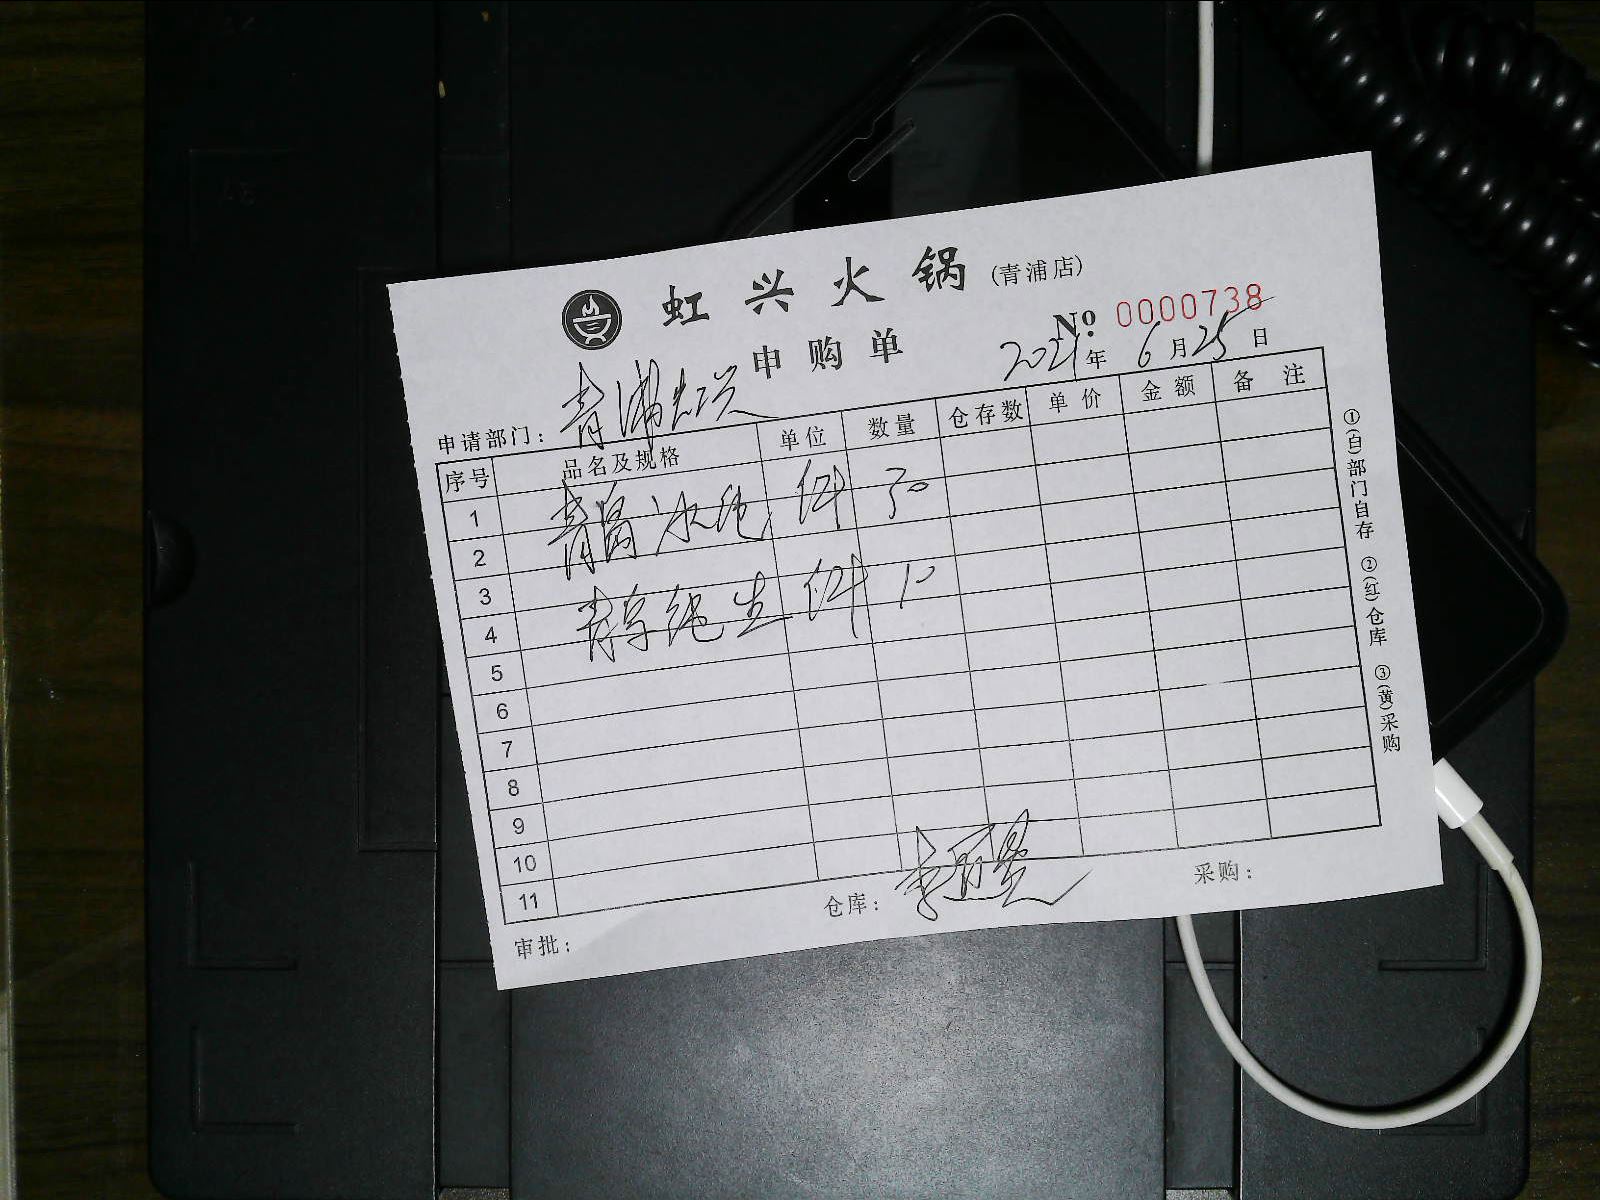 虹兴火锅(青浦店)
申购单
No. 0000738
2021年6月25日
申请部门：青浦虹兴
序号 品名及规格 单位 数量 仓存数 单价 金额 备注
1
2 青岛冰纯 件 30
3
4 青岛纯生 件 10
5
6
7
8
9
10
11
审批：
仓库：李
采购：
①(白)部门自存 ②(红)仓库 ③(黄)采购